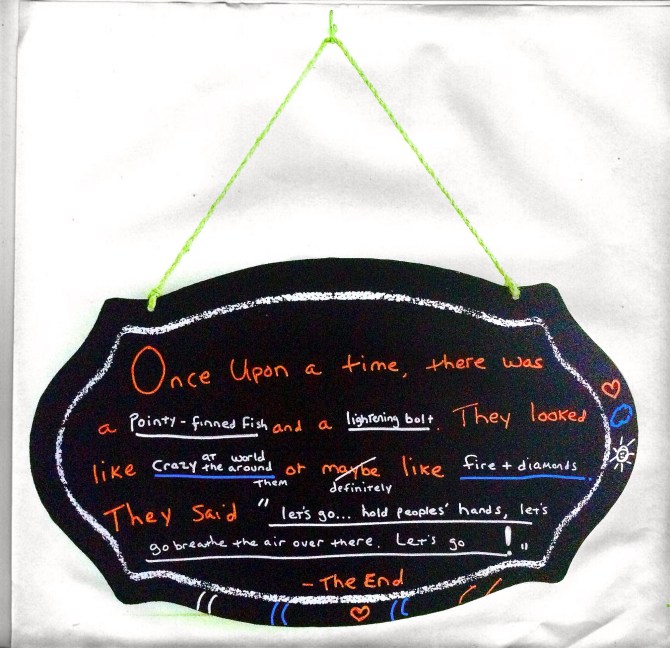 Once Upon a time, there was
a Pointy-finned Fish and a lightening bolt. They looked
like Crazy at the world around Them or maybe definitely like fire + diamonds.
They Said "let's go... hold peoples' hands, let's
go breathe the air over there. Let's go !"
- The End